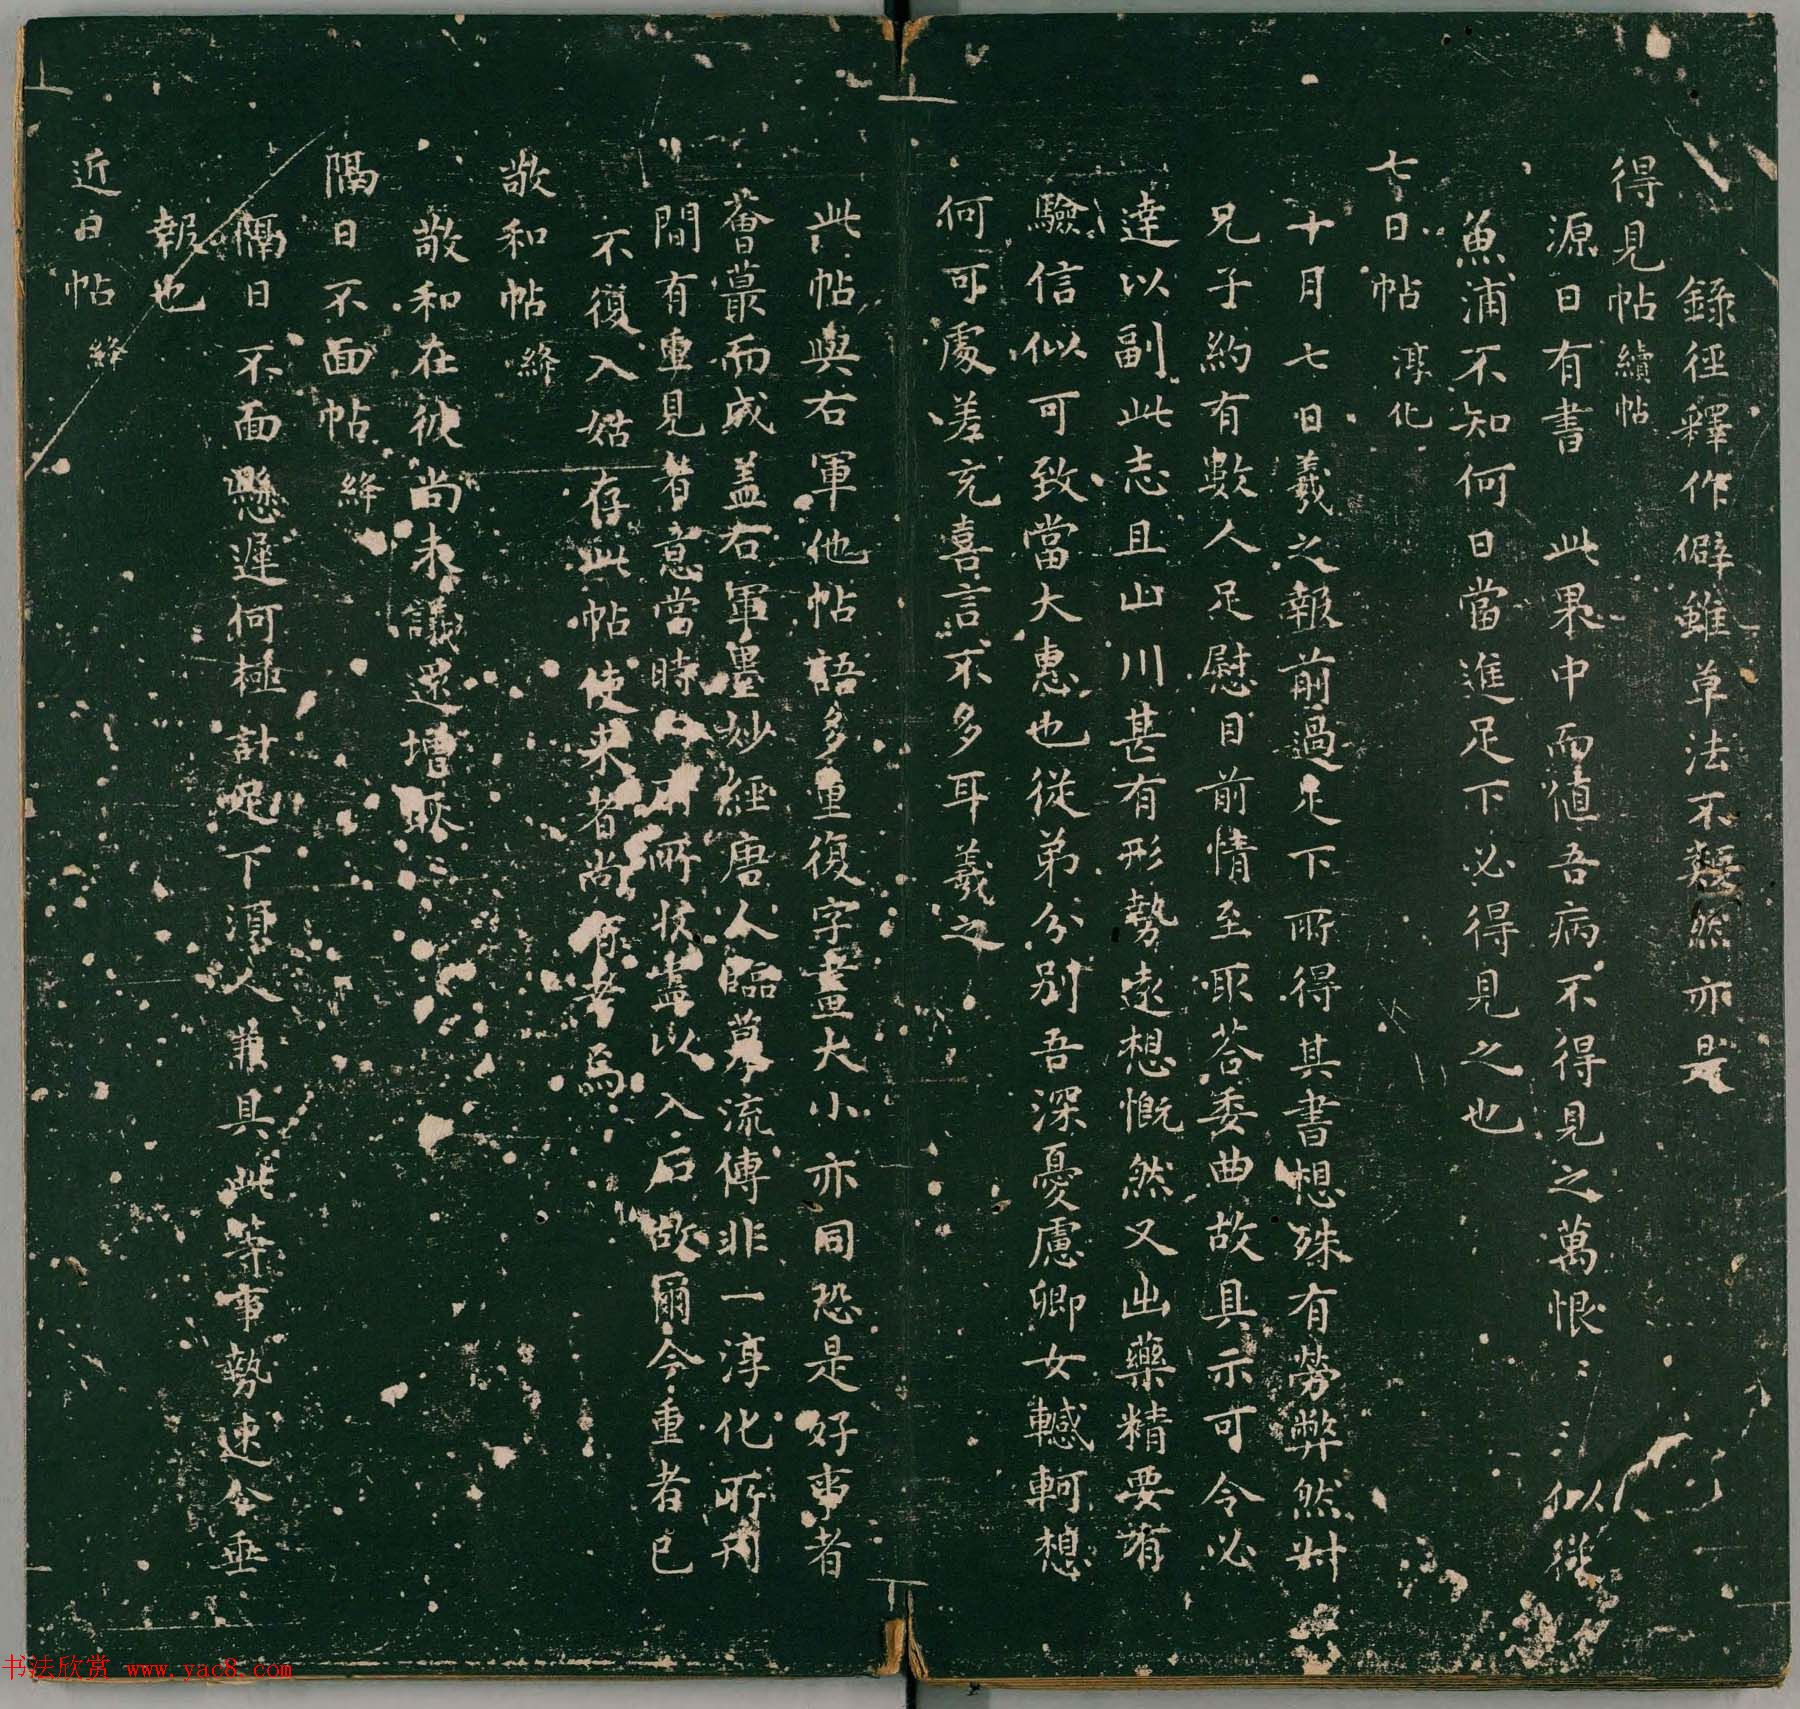 錄徑釋作僻雖草法不類然亦是
得見帖 續帖
源日有書 此果中而值吾病不得見之萬恨〻 三似從
魚浦不知何日當進足下必得見之也
七日帖 淳化
十月七日羲之報前過足下所得其書想殊有勞弊然叔
兄子約有數人足慰目前情至取荅委曲故具示可令必
達以副此志且山川甚有形勢遠想慨然又出藥精要有
驗信似可致當大惠也從弟分別吾深憂慮卿女轗軻想
何可處差充喜言不多耳 羲之
此帖與右軍他帖語多重復字畫大小亦同恐是好事者
薈蕞而成蓋右軍墨妙經唐人臨摹流傳非一淳化所刊
間有重見者意當時所收盡以入石故爾今重者已
不復入姑存此帖使來者尚有考焉
敬和帖 絳
敬和在彼尚未議還增耿〻
隔日不面帖 絳
隔日不面懸遲何極計足下須人兼具此等事勢速令垂
報也
近日帖 絳
书法欣赏 www.yac8.com